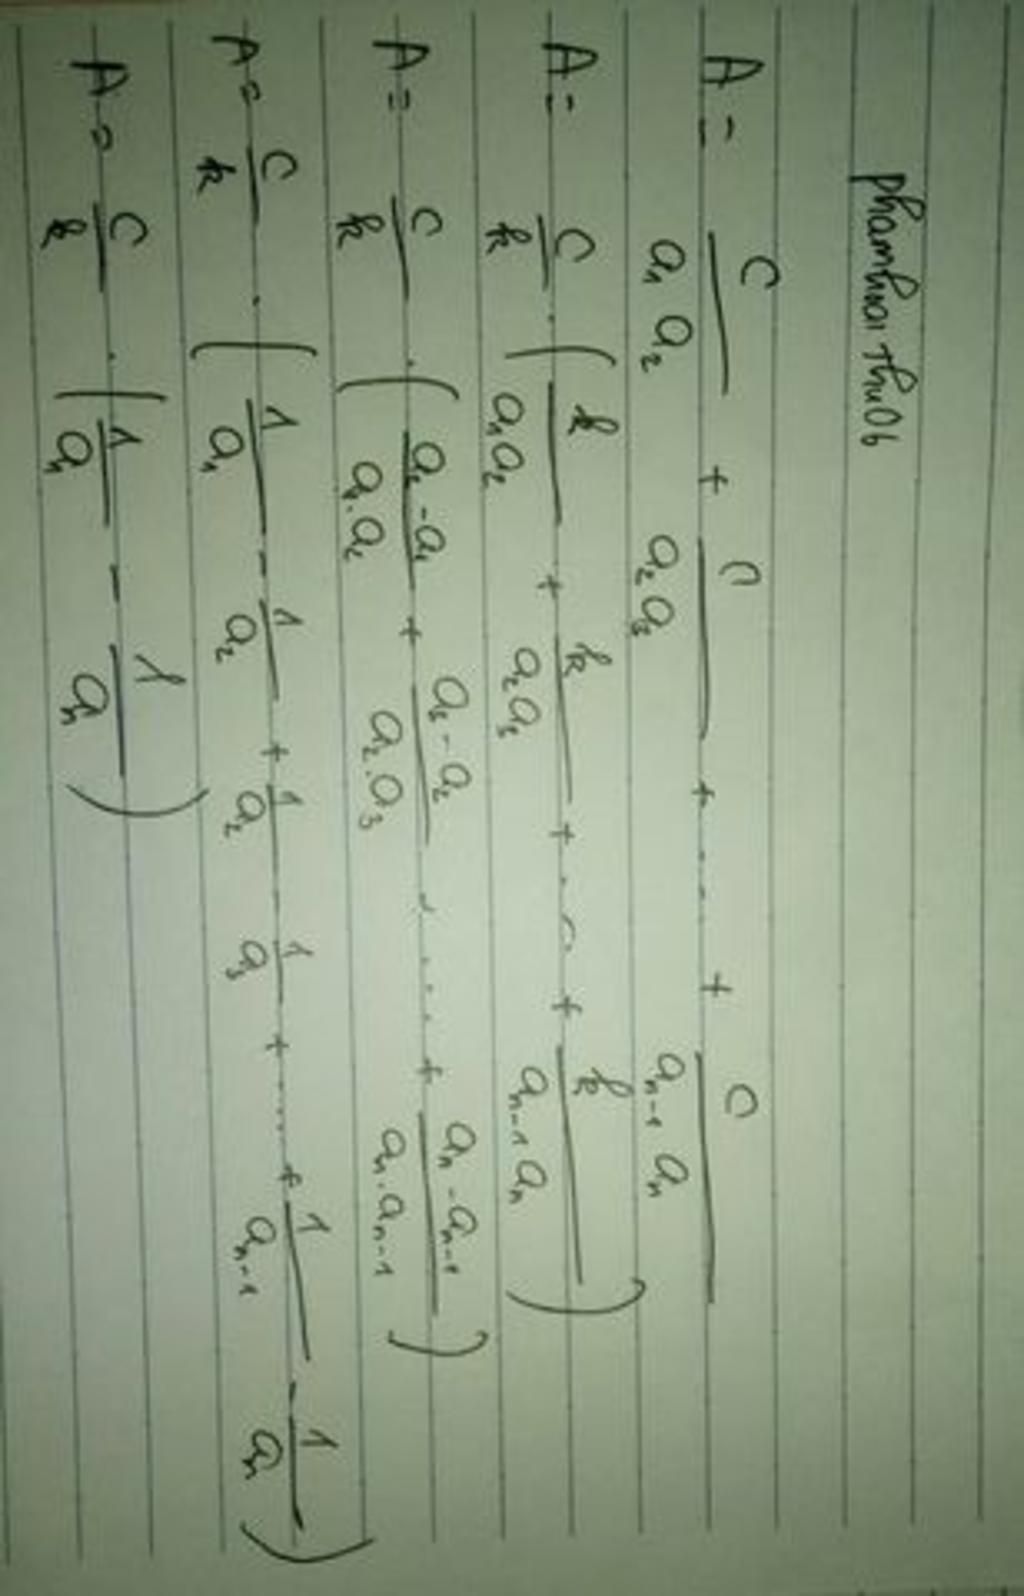 phamhoithu06
A = C/(a₁ a₂) + C/(a₂ a₃) + .... + C/(aₙ₋₁ aₙ)
A = C/k . ( k/(a₁ a₂) + k/(a₂ a₃) + ... + k/(aₙ₋₁ aₙ) )
A = C/k . ( (a₂ - a₁)/(a₁ . a₂) + (a₃ - a₂)/(a₂ . a₃) ..... + (aₙ - aₙ₋₁)/(aₙ . aₙ₋₁) )
A = C/k . ( 1/a₁ - 1/a₂ + 1/a₂ 1/a₃ + ..... + 1/aₙ₋₁ - 1/aₙ )
A = C/k . ( 1/a₁ - 1/aₙ )